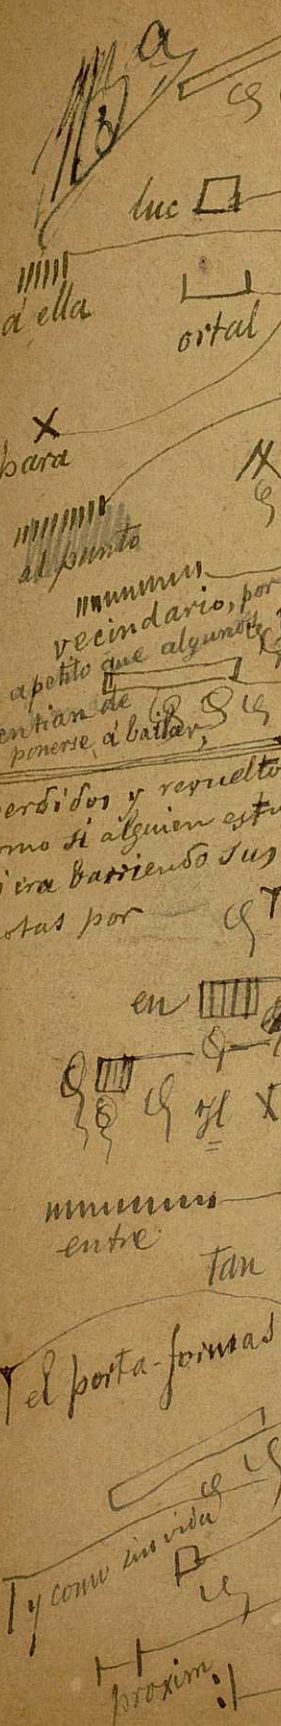 a
luc
á ella
ortal
para
al punto
vecindario, por
apetito que algunos
entian de
ponerse á bailar,
erdidos y revuelto
omo si alguien estu
iera barriendo sus
otas por
en
entre
tan
el porta-formas
y como sin vida
proxim